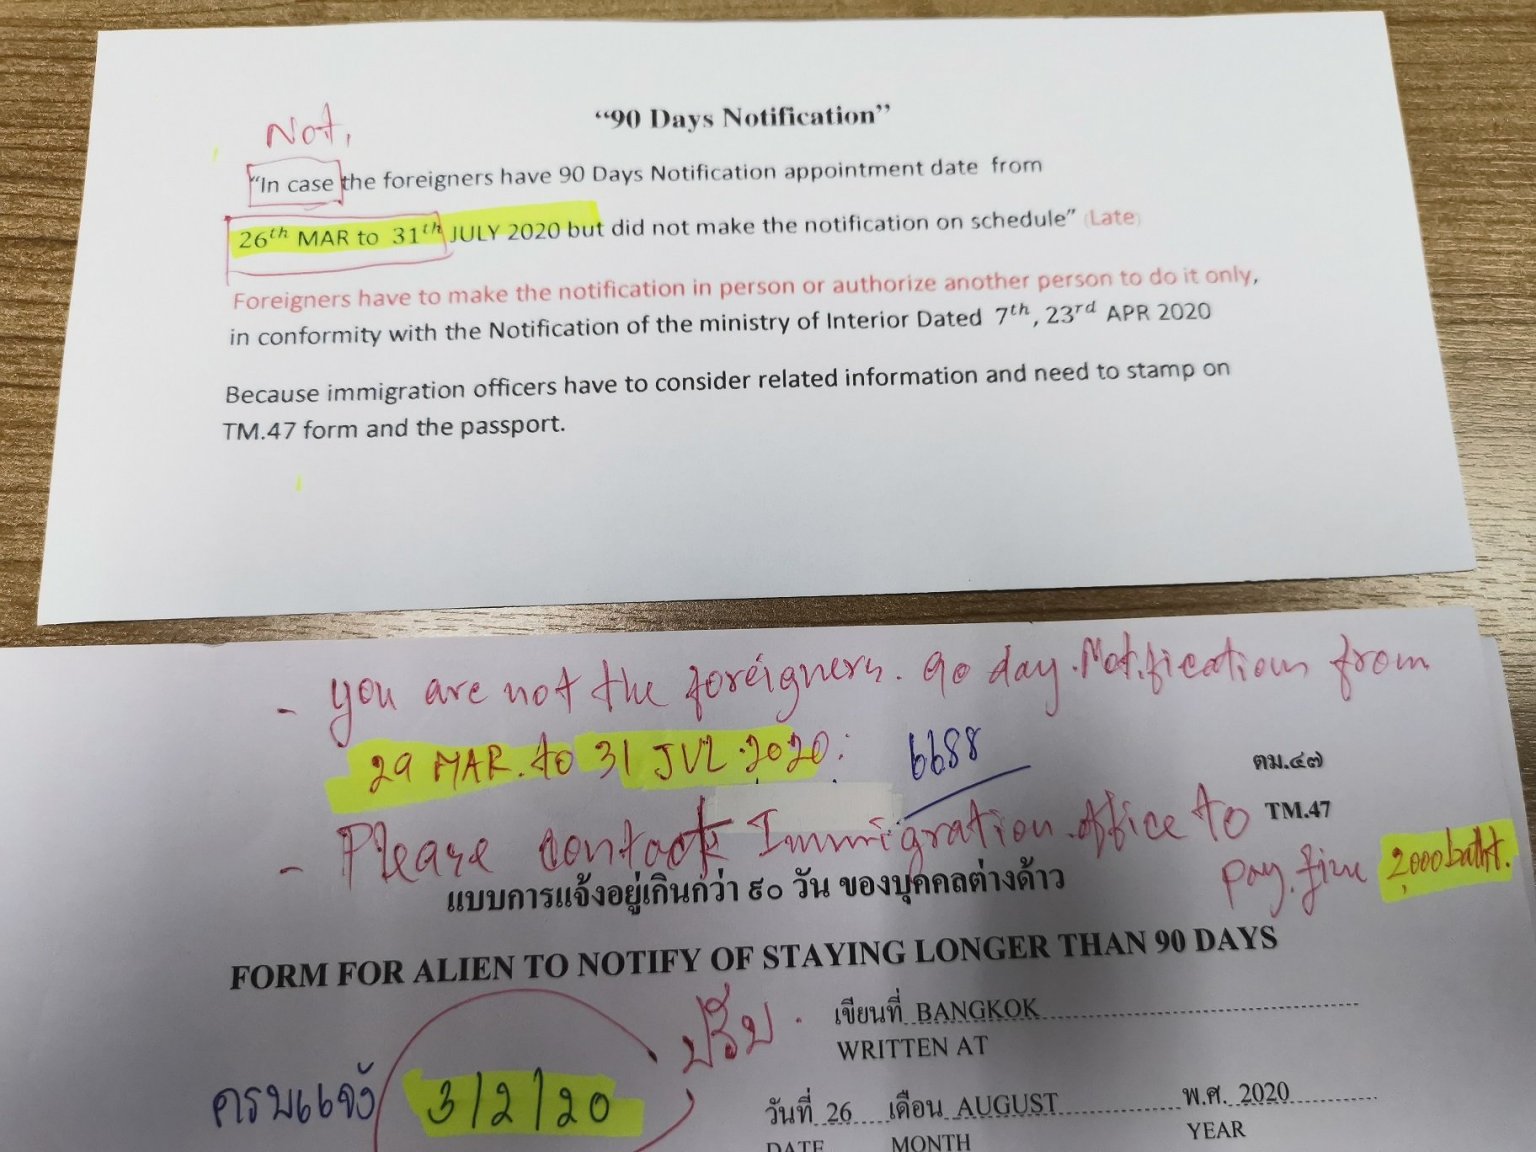 “90 Days Notification”
Not,
“In case the foreigners have 90 Days Notification appointment date from
26th MAR to 31th JULY 2020 but did not make the notification on schedule” (Late)
Foreigners have to make the notification in person or authorize another person to do it only,
in conformity with the Notification of the ministry of Interior Dated 7th, 23rd APR 2020
Because immigration officers have to consider related information and need to stamp on
TM.47 form and the passport.
- you are not the foreigners. 90 day. Notifications from
29 MAR. to 31 JUL. 2020:
6688
ตม.๔๗
TM.47
- Please contact Immigration office to
pay. fine 2,000 baht.
แบบการแจ้งอยู่เกินกว่า ๙๐ วัน ของบุคคลต่างด้าว
FORM FOR ALIEN TO NOTIFY OF STAYING LONGER THAN 90 DAYS
ปรับ.
เขียนที่ BANGKOK
WRITTEN AT
ครบแจ้ง 3/2/20
วันที่ 26 เดือน AUGUST พ.ศ. 2020
DATE MONTH YEAR